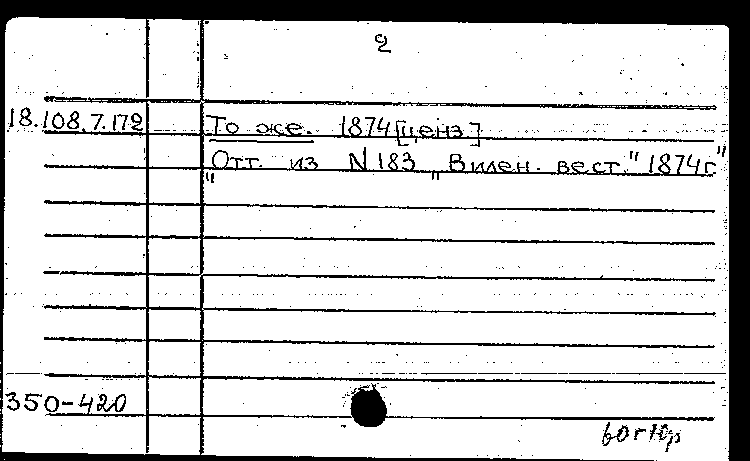 2
18.108.7.172 То же. 1874 [ценз]
"Отт. из N 183 „Вилен. вест." 1874г."
350-420